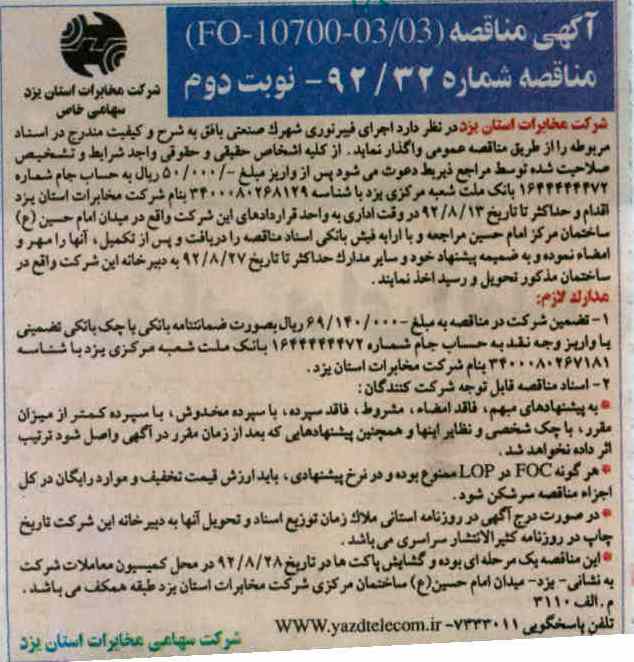 آگهی مناقصه (FO-10700-03/03)
مناقصه شماره ۹۲/۳۲ - نوبت دوم
شرکت مخابرات استان یزد
سهامی خاص
شرکت مخابرات استان یزد در نظر دارد اجرای فیبرنوری شهرک صنعتی بافق به شرح و کیفیت مندرج در اسناد
مربوطه را از طریق مناقصه عمومی واگذار نماید. از کلیه اشخاص حقیقی و حقوقی واجد شرایط و تشخیص
صلاحیت شده توسط مراجع ذیربط دعوت می شود پس از واریز مبلغ -/۵۰/۰۰۰ ریال به حساب جام شماره
۱۶۴۴۴۴۴۴۷۲ بانک ملت شعبه مرکزی یزد با شناسه ۳۴۰۰۰۸۰۲۶۸۱۲۹ بنام شرکت مخابرات استان یزد
اقدام و حداکثر تا تاریخ ۹۲/۸/۱۳ در وقت اداری به واحد قراردادهای این شرکت واقع در میدان امام حسین (ع)
ساختمان مرکز امام حسین مراجعه و با ارایه فیش بانکی اسناد مناقصه را دریافت و پس از تکمیل، آنها را مهر و
امضاء نموده و به ضمیمه پیشنهاد خود و سایر مدارک حداکثر تا تاریخ ۹۲/۸/۲۷ به دبیرخانه این شرکت واقع در
ساختمان مذکور تحویل و رسید اخذ نمایند.
مدارک لازم:
۱- تضمین شرکت در مناقصه به مبلغ -۶۹/۱۴۰/۰۰۰ ریال بصورت ضمانتنامه بانکی یا چک بانکی تضمینی
یا واریز وجه نقد به حساب جام شماره ۱۶۴۴۴۴۴۴۷۲ بانک ملت شعبه مرکزی یزد با شناسه
۳۴۰۰۰۸۰۲۶۷۱۸۱ بنام شرکت مخابرات استان یزد.
۲- اسناد مناقصه قابل توجه شرکت کنندگان:
* به پیشنهادهای مبهم، فاقد امضاء، مشروط، فاقد سپرده، با سپرده مخدوش، با سپرده کمتر از میزان
مقرر، با چک شخصی و نظایر اینها و همچنین پیشنهادهایی که بعد از زمان مقرر در آگهی واصل شود ترتیب
اثر داده نخواهد شد.
* هر گونه FOC در LOP ممنوع بوده و در نرخ پیشنهادی، باید ارزش قیمت تخفیف و موارد رایگان در کل
اجزاء مناقصه سرشکن شود.
* در صورت درج آگهی در روزنامه استانی ملاک زمان توزیع اسناد و تحویل آنها به دبیرخانه این شرکت تاریخ
چاپ در روزنامه کثیرالانتشار سراسری می باشد.
* این مناقصه یک مرحله ای بوده و گشایش پاکت ها در تاریخ ۹۲/۸/۲۸ در محل کمیسیون معاملات شرکت
به نشانی- یزد- میدان امام حسین(ع) ساختمان مرکزی شرکت مخابرات استان یزد طبقه همکف می باشد.
م.الف ۳۱۱۰
تلفن پاسخگویی ۷۳۳۳۰۱۱- WWW.yazdtelecom.ir
شرکت سهامی مخابرات استان یزد